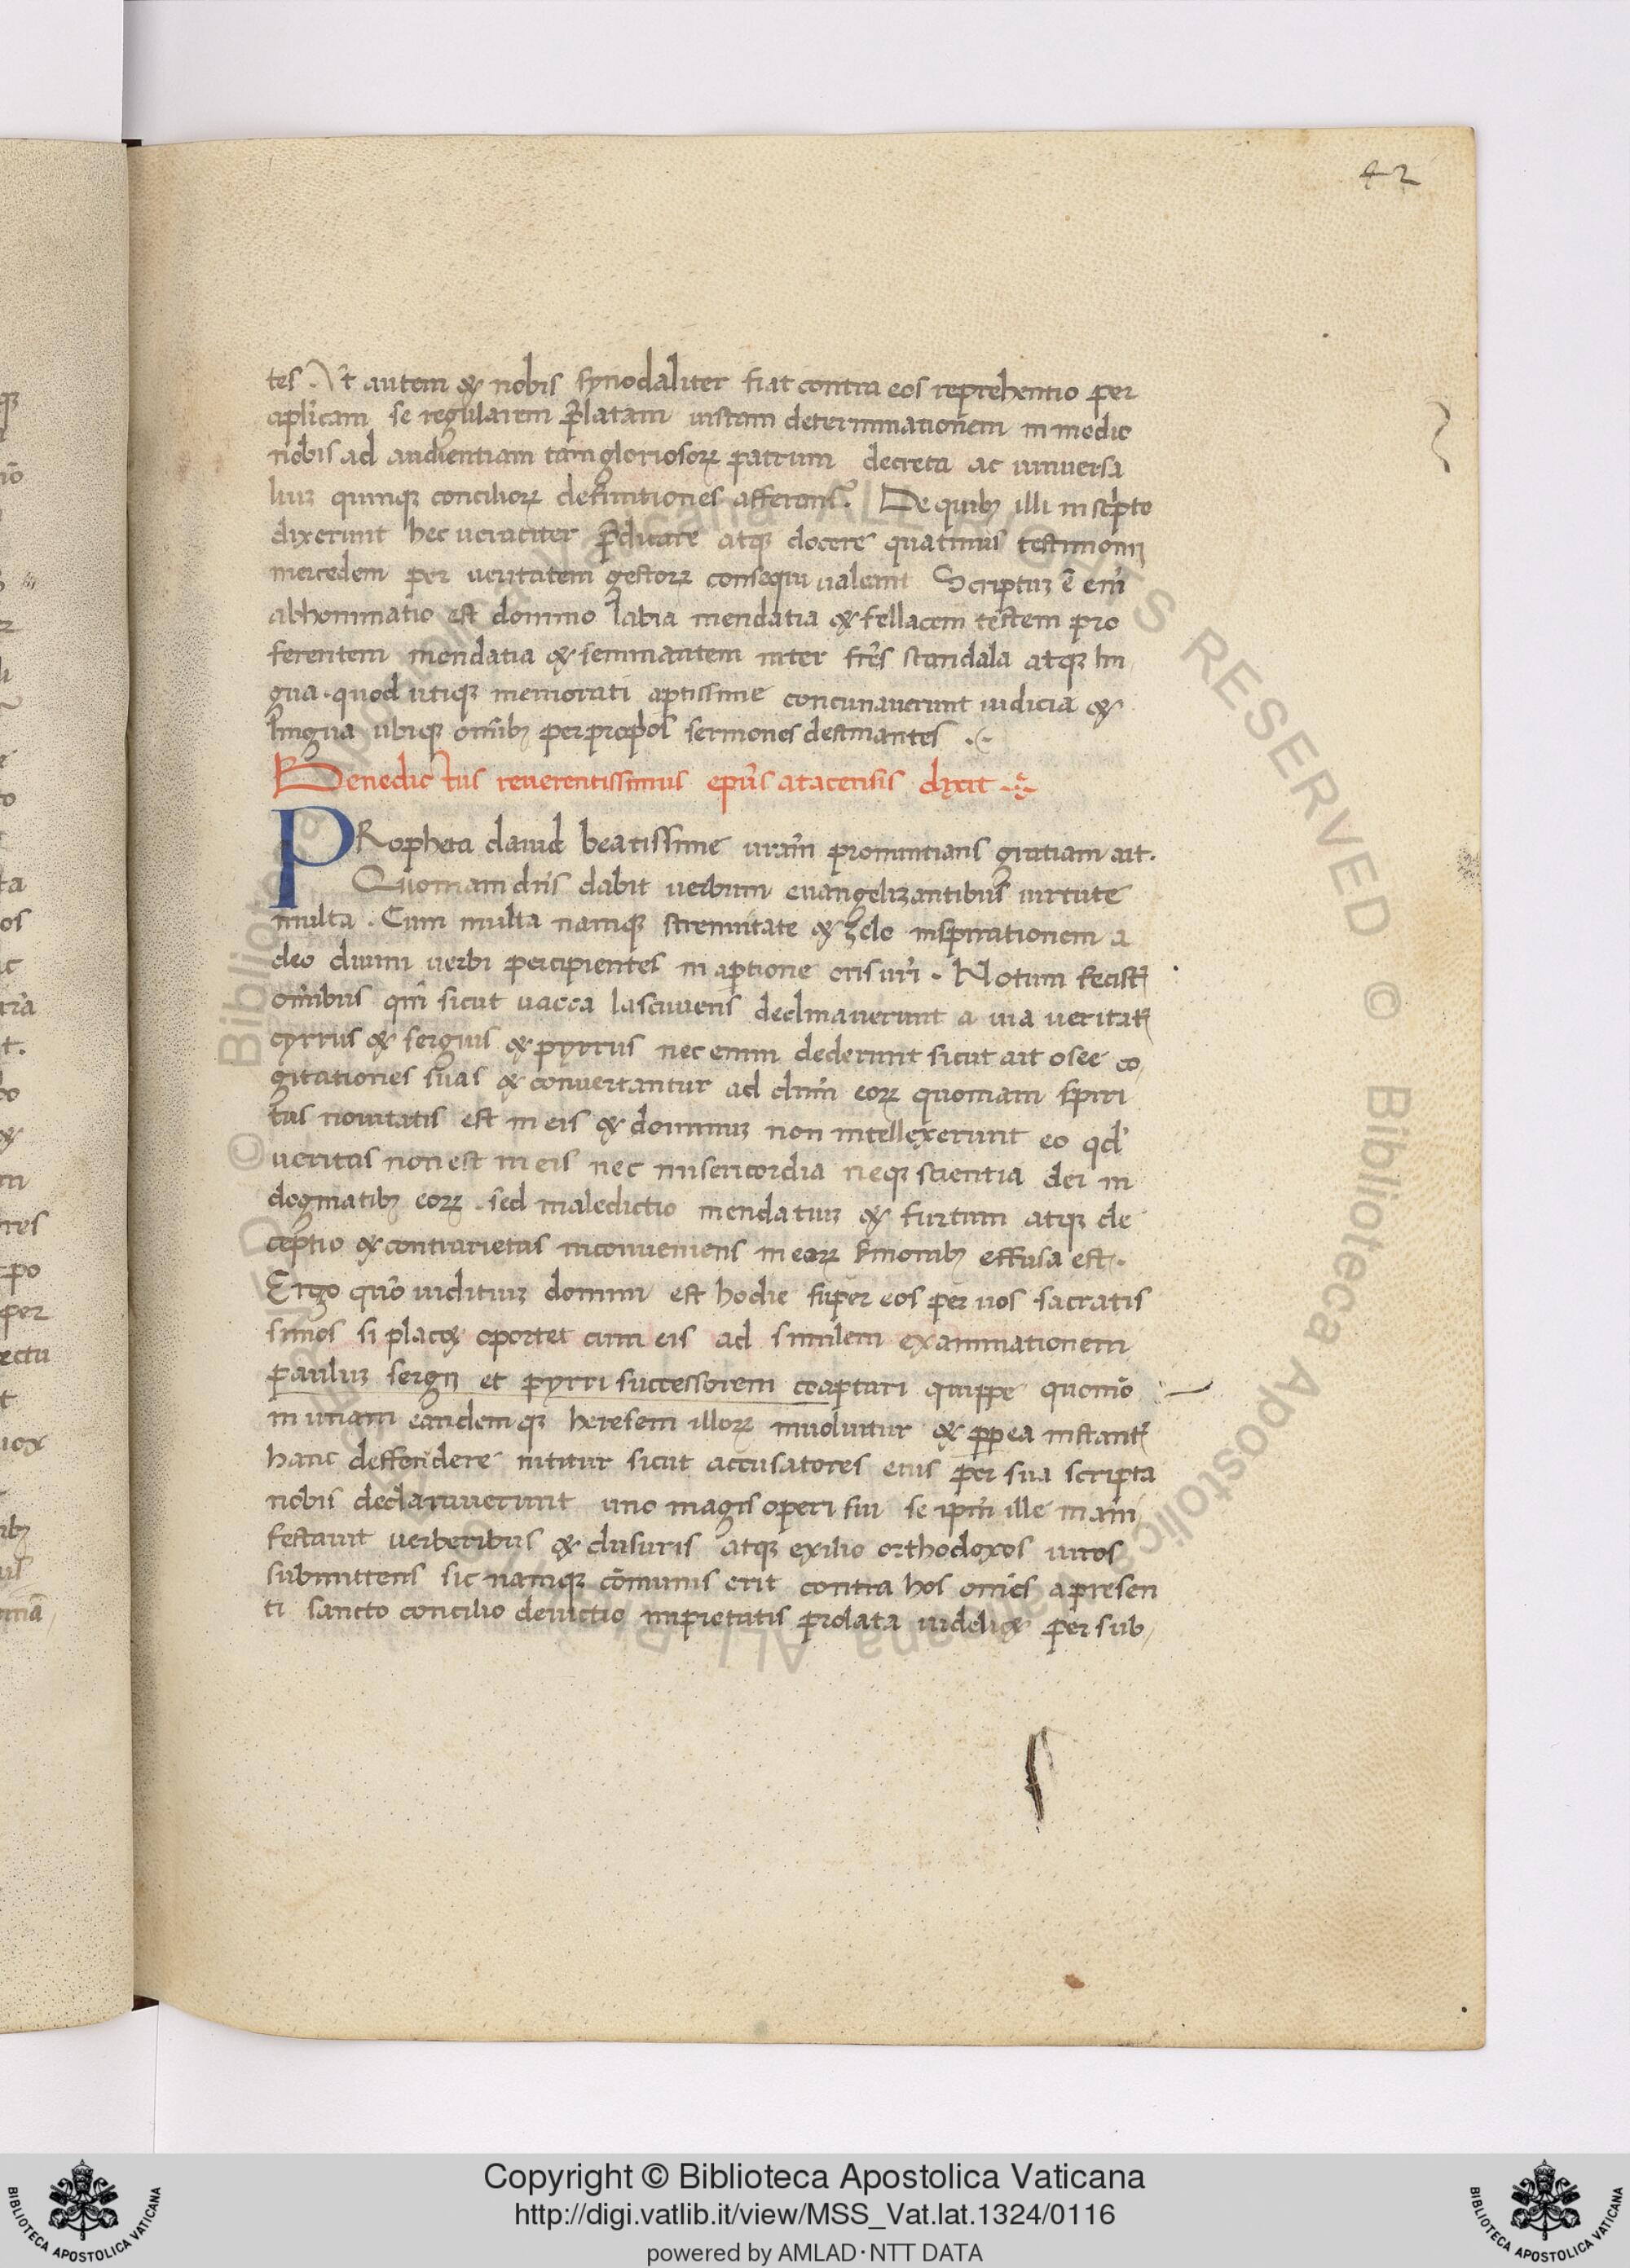 42
tes. Vt autem & nobis synodaliter fiat contra eos reprehentio per
aplicam se regularem p̄latam iustam determinationem in medio
nobis ad audientiam tam gloriosoꝝ patrum decreta ac uniuersa
liuꝫ quinqꝫ conciliorꝝ definitiones afferant᷑. De quibꝫ illi in sc̄pto
dixerunt hec ueraciter p̄dicare atqꝫ docere quatinus testimonij
mercedem per ueritatem gestorꝝ consequi ualeant Scriptuꝫ ē eni᷑
abhominatio est domino labia mendatia & fellacem testem pro
ferentem mendatia & seminantem inter fr̄es scandala atqꝫ lin
gua. quod utiqꝫ memorati aptissime concinauerunt iudicia &
lingua ubiqꝫ omībꝫ per propōs sermones destinantes .
Benedictus reuerentissimus ep̄us atacensis dixit
PRopheta dauid beatissime ur̄am pronuntians gratiam ait.
Quoniam dn̄s dabit uerbum euangelizantibus uirtute
multa. Cum multa namqꝫ strenuitate & zelo inspirationem a
deo diuini uerbi percipientes in aptione oris ur̄i. Notum fecist᷑
om̄ibus qm̄ sicut uacca lasciuiens declinauerunt a uia ueritat᷑
cyrrus & sergius & pyrrus nec enim dederunt sicut ait osee co
gitationes suas & conuertantur ad dn̄m eoꝝ quoniam spiri
tus nouitatis est in eis & dominuꝫ non intellexerunt eo qd᷑
ueritas non est in eis nec misericordia neqꝫ scientia dei in
dogmatibꝫ eoꝝ. sed maledictio mendatiuꝫ & furtum atqꝫ de
ceptio & contrarietas inconueniens in eoꝝ s̄monibꝫ effusa est.
Ergo quō iuditiuꝫ domini est hodie super eos per uos sacratis
simos si plac& oportet cum eis ad similem examinationem
pauluꝫ sergij et pyrri successorem coaptari quippe quomō
in unam eandemqꝫ heresem illoꝝ inuoluitur & ꝓpea instant᷑
hanc deffendere nititur sicut accusatores eius per sua scripta
nobis declarauerunt uno magis operi sui se ipm̄ ille mani
festauit uerberibus & clusuris atqꝫ exilio orthodoxos uiros
submittens sic namqꝫ cōmunis erit contra hos om̄es a presen
ti sancto concilio deuictio impietatis prolata uidelic& per sub
Copyright © Biblioteca Apostolica Vaticana
http://digi.vatlib.it/view/MSS_Vat.lat.1324/0116
powered by AMLAD·NTT DATA